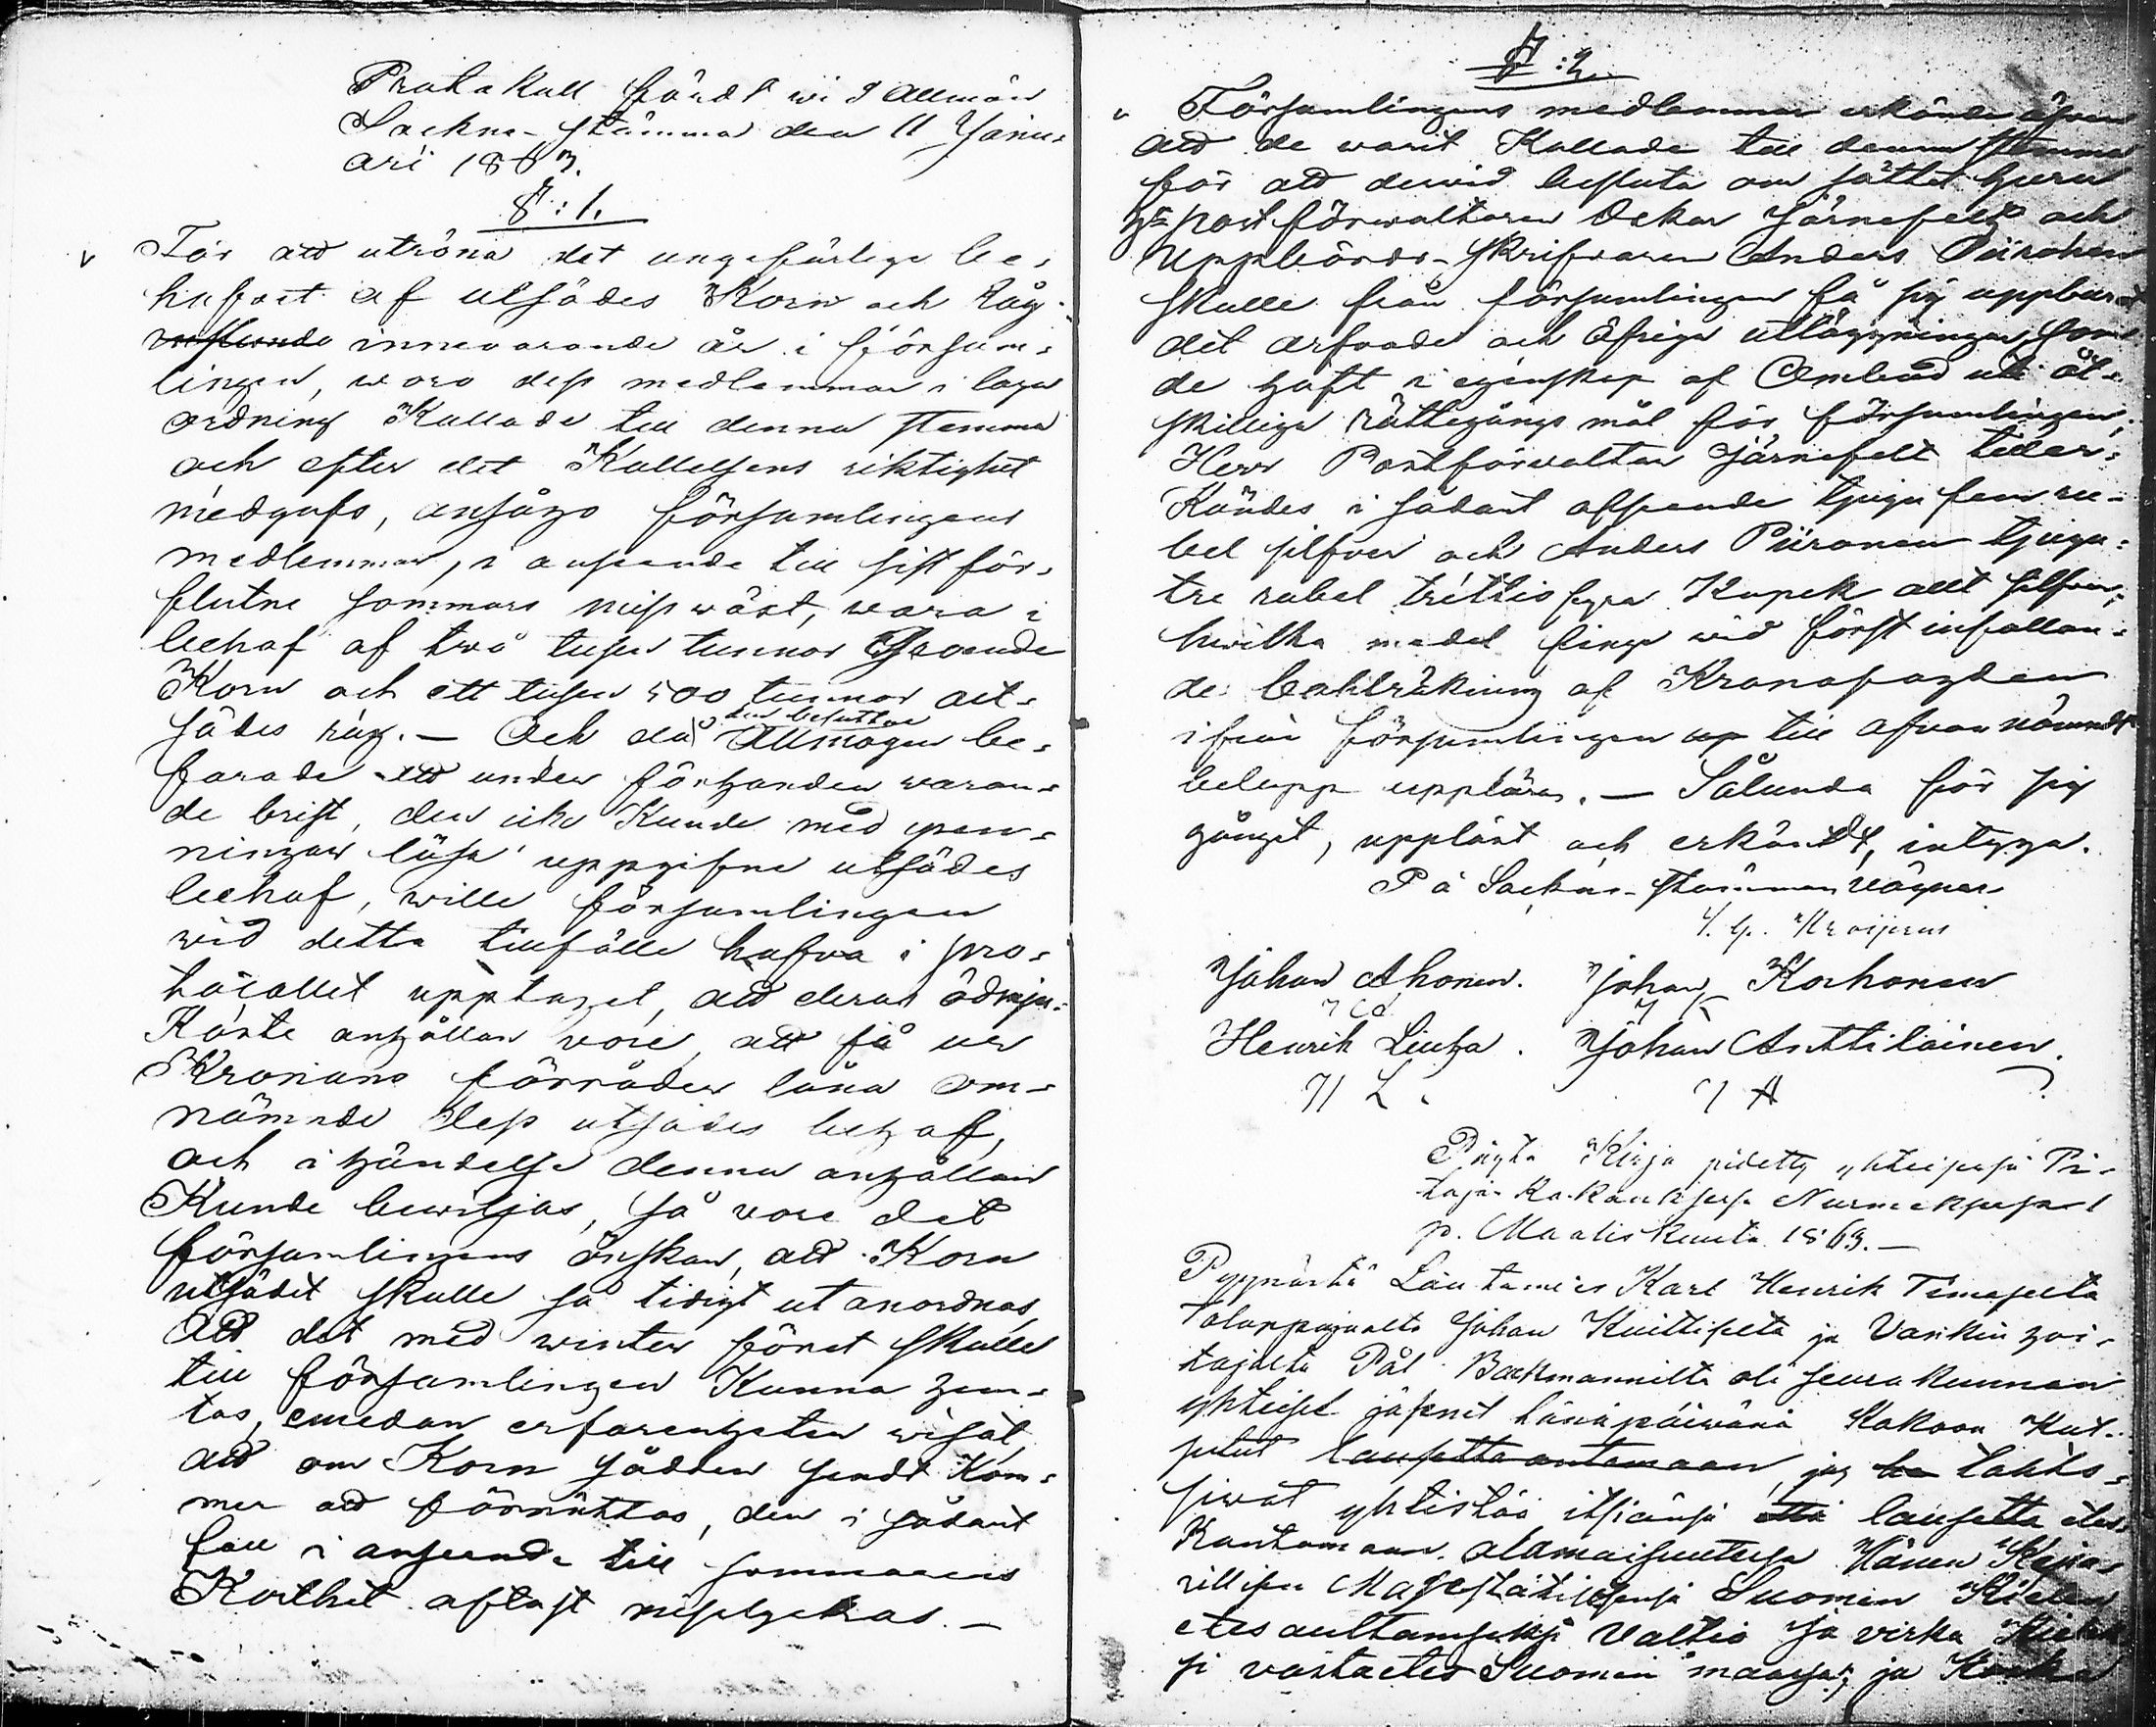 Protokoll fördt wid Allmän
Sockne-stämma den 11 Janu-
ari 1863.
§:1.
För att utröna det ungefärlige be-
hofvet af utsädes Korn och Råg
innevarande år i försam-
lingen, woro dess medlemmar i laga
ordning Kallade till denna stemma
och efter det Kallelsens riktighet
medgafs, ansågo församlingens
medlemmar, i anseende till sist för-
flutne sommars missväxt, wara i
behof af två tusen tunnor Groende
Korn och ett tusen 500 tunnor ut-
sädes råg. — Och då den besuttne Allmogen be-
farade att under förhanden waran-
de brist, den icke Kunde med pen-
ningar lösa uppgifne utsädes
behof, wille församlingen
wid detta tillfälle hafva i pro-
tocollet upptaget, att deras ödmju-
Kaste anhållan vore, att få ur
Kronans förråder låna om-
nämnde dess utsädes behof,
och i händelse denna anhållan
Kunde bewiljas, så vore det
församlingens önskan, att Korn
utsädet skulle så tidigt utanordnas,
att det med winter föret skulle
till församlingen Kunna hem-
tas, emedan erfarenheten wisat
att om Korn sådden sendt Kom-
mer att förrättas, den i sådant
fall i anseende till sommarens
Korthet oftast misslyckas. —
§:2.
Församlingens medlemmar erkände äfven
att de warit Kallade till denna stemma
för att derwid besluta om sättet huru
Hr postförwaltaren Oskar Järnefelt och
Uppbörds-skrifvaren Anders Piironen
skulle från församlingen få sig uppburet
det arfvode och öfriga utläggningar, som
de haft i egenskap af Ombud uti åt-
skilliga rättegångs mål för församlingen;
Herr Postförvaltar Järnefelt tiller-
Kändes i sådant afseende tjugufem ru-
bel silfver och Anders Piironen tjugu-
tre rubel trettio fyra Kopek allt silfver,
hwilka medel finge wid först infallan-
de Kronofogden
ifrån församlingen till ofvan nämndt
belopp uppbäras. — Sålunda för sig
gånget, uppläst och erkändt, intyga.
På Sockne-stämmans vägnar
Johan Ahonen. Johan Korhonen
J A J K
Henrik Lintza. Johan Anttilainen.
H L J A
Pöytä Kirja pidetty yhteisessä Pi-
täjän Kokouksessa Nurmeksessa 1
p. Maalis Kuuta 1863. —
Pyynnöstä Lautamies Karl Henrik Timoselta
Talonpojalta Johan Kuittiselta ja Vankin hoi-
tajalta Pål Backmannilta oli seurakunnan
yhteiset jäsenet tänäpäiwänä Kokoon Kut-
sutut lausetta antamaan, jos ha tahto-
siwat yhtistää itsiänsä että lausetta ede-
Kantamaan alamaisuutessa Hänen Keisa-
rillisen Majestätillensä Suomen Kielen
etes auttamiseksi Valtio ja virka Kielek-
si vastaetes Suomen maassa; ja Koska